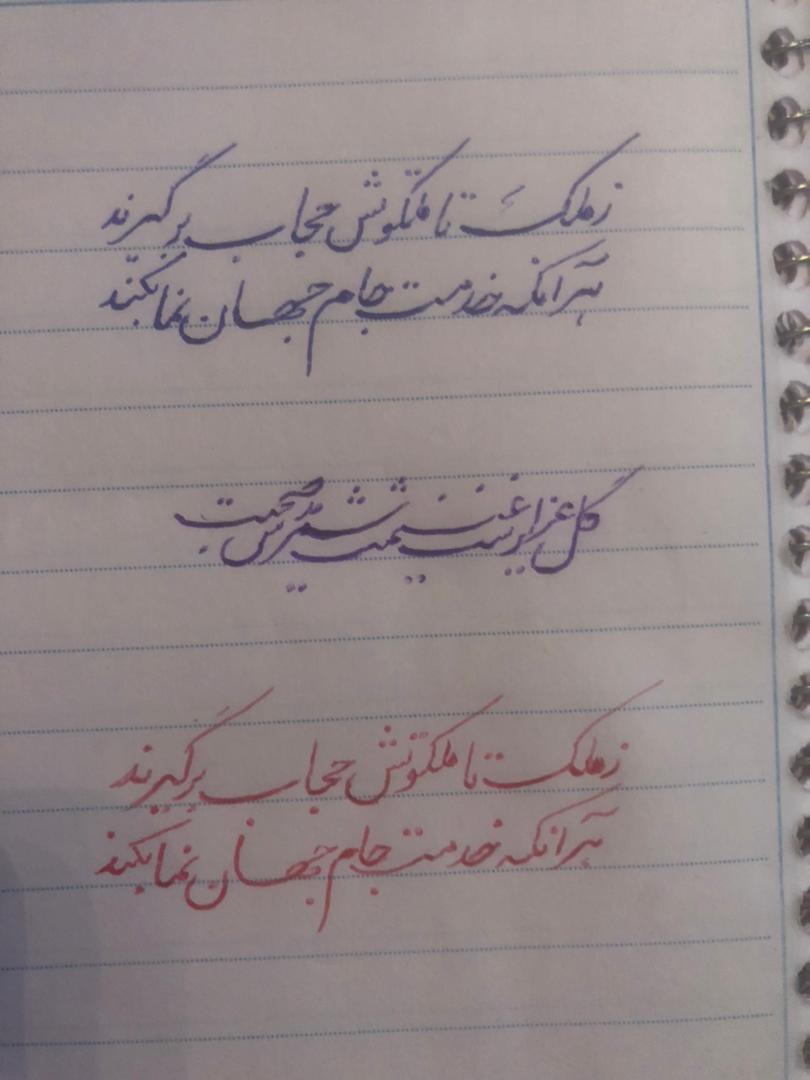 ز ملک تا ملکوتش حجاب برگیرند
هر آنکه خدمت جام جهان نما بکند
گل عزیز است غنیمت شمریدش صحبت
ز ملک تا ملکوتش حجاب برگیرند
هر آنکه خدمت جام جهان نما بکند